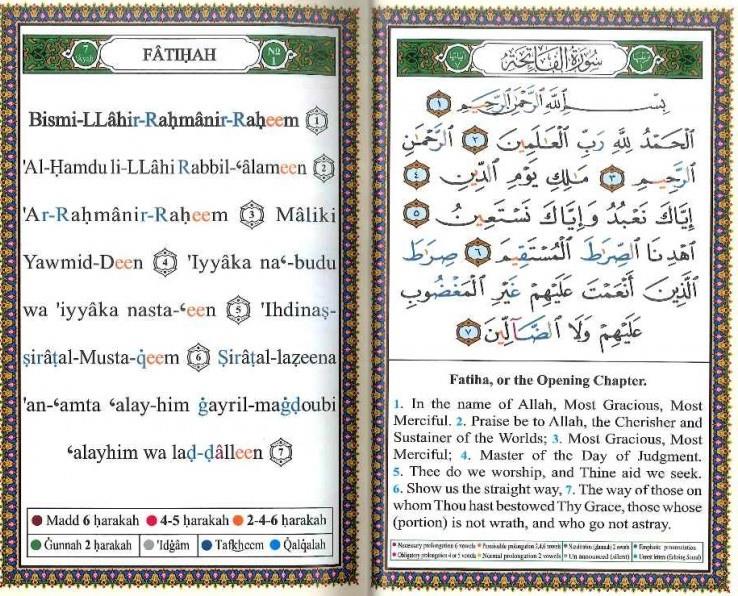 7
Âyah
FÂTIḤAH
No
1
Bismi-LLâhir-Raḥmânir-Raḥeem 1
'Al-Ḥamdu li-LLâhi Rabbil-‘âlameen 2
'Ar-Raḥmânir-Raḥeem 3 Mâliki
Yawmid-Deen 4 'Iyyâka na‘-budu
wa 'iyyâka nasta-‘een 5 'Ihdinaṣ-
ṣirâṭal-Musta-q̇eem 6 Ṣirâṭal-laz̤eena
'an-‘amta ‘alay-him ġayril-maġḍoubi
‘alayhim wa laḍ-ḍâlleen 7
Madd 6 ḥarakah 4-5 ḥarakah 2-4-6 ḥarakah
Ġunnah 2 ḥarakah 'Idġâm Tafkheem Q̇alq̇alah
سُورَةُ الْفَاتِحَةِ
بِسْمِ اللَّهِ الرَّحْمَٰنِ الرَّحِيمِ ١
الْحَمْدُ لِلَّهِ رَبِّ الْعَالَمِينَ ٢ الرَّحْمَٰنِ
الرَّحِيمِ ٣ مَالِكِ يَوْمِ الدِّينِ ٤
إِيَّاكَ نَعْبُدُ وَإِيَّاكَ نَسْتَعِينُ ٥
اهْدِنَا الصِّرَاطَ الْمُسْتَقِيمَ ٦ صِرَاطَ
الَّذِينَ أَنْعَمْتَ عَلَيْهِمْ غَيْرِ الْمَغْضُوبِ
عَلَيْهِمْ وَلَا الضَّآلِّينَ ٧
Fatiha, or the Opening Chapter.
1. In the name of Allah, Most Gracious, Most
Merciful. 2. Praise be to Allah, the Cherisher and
Sustainer of the Worlds; 3. Most Gracious, Most
Merciful; 4. Master of the Day of Judgment.
5. Thee do we worship, and Thine aid we seek.
6. Show us the straight way, 7. The way of those on
whom Thou hast bestowed Thy Grace, those whose
(portion) is not wrath, and who go not astray.
Necessary prolongation 6 vowels Permissible prolongation 2,4,6 vowels Nazalization (ghunnah) 2 vowels Emphatic pronunciation
Obligatory prolongation 4 or 5 vowels Normal prolongation 2 vowels Un announced (silent) Unrest letters (Echoing Sound)